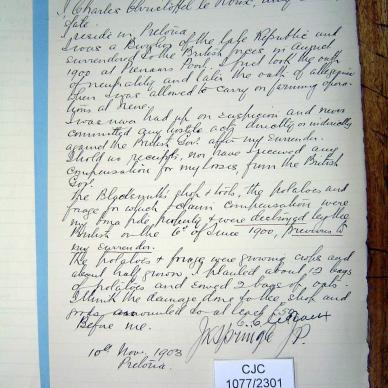 I Charles Christoffel le Roux,
state.
I reside in Pretoria
I was a Burgher of the late Republic and
surrendered to the British forces in August
1900 at Pienaars Poort. I first took the oath
of neutrality and later the oath of allegiance
when I was allowed to carry on farming opera-
tions at
I was never had up on suspicion and never
committed any hostile act directly or indirectly
against the British Gov. after my surrender.
I hold no receipts, nor have I received any
compensation for my losses from the British
Gov.
The Blacksmith's shop & tools, the potatoes and
forage for which I claim compensation were
my bona fide property & were destroyed by the
British on the 6th of June 1900, previous to
my surrender.
The potatoes & forage were growing crops and
about half grown. I planted about 12 bags
of potatoes and sowed 2 bags of oats.
I think the damage done to the shop and
crops amounted to at least £
Before me.
JP
10th Nov. 1903
Pretoria.
CJC
1077/2301